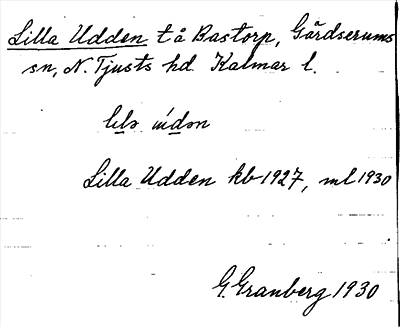 Lilla Udden t å Bastorp, Gärdserums
sn, N. Tjusts hd. Kalmar l.
lılə ıúdən
Lilla Udden kb 1927, ml 1930
G. Granberg 1930